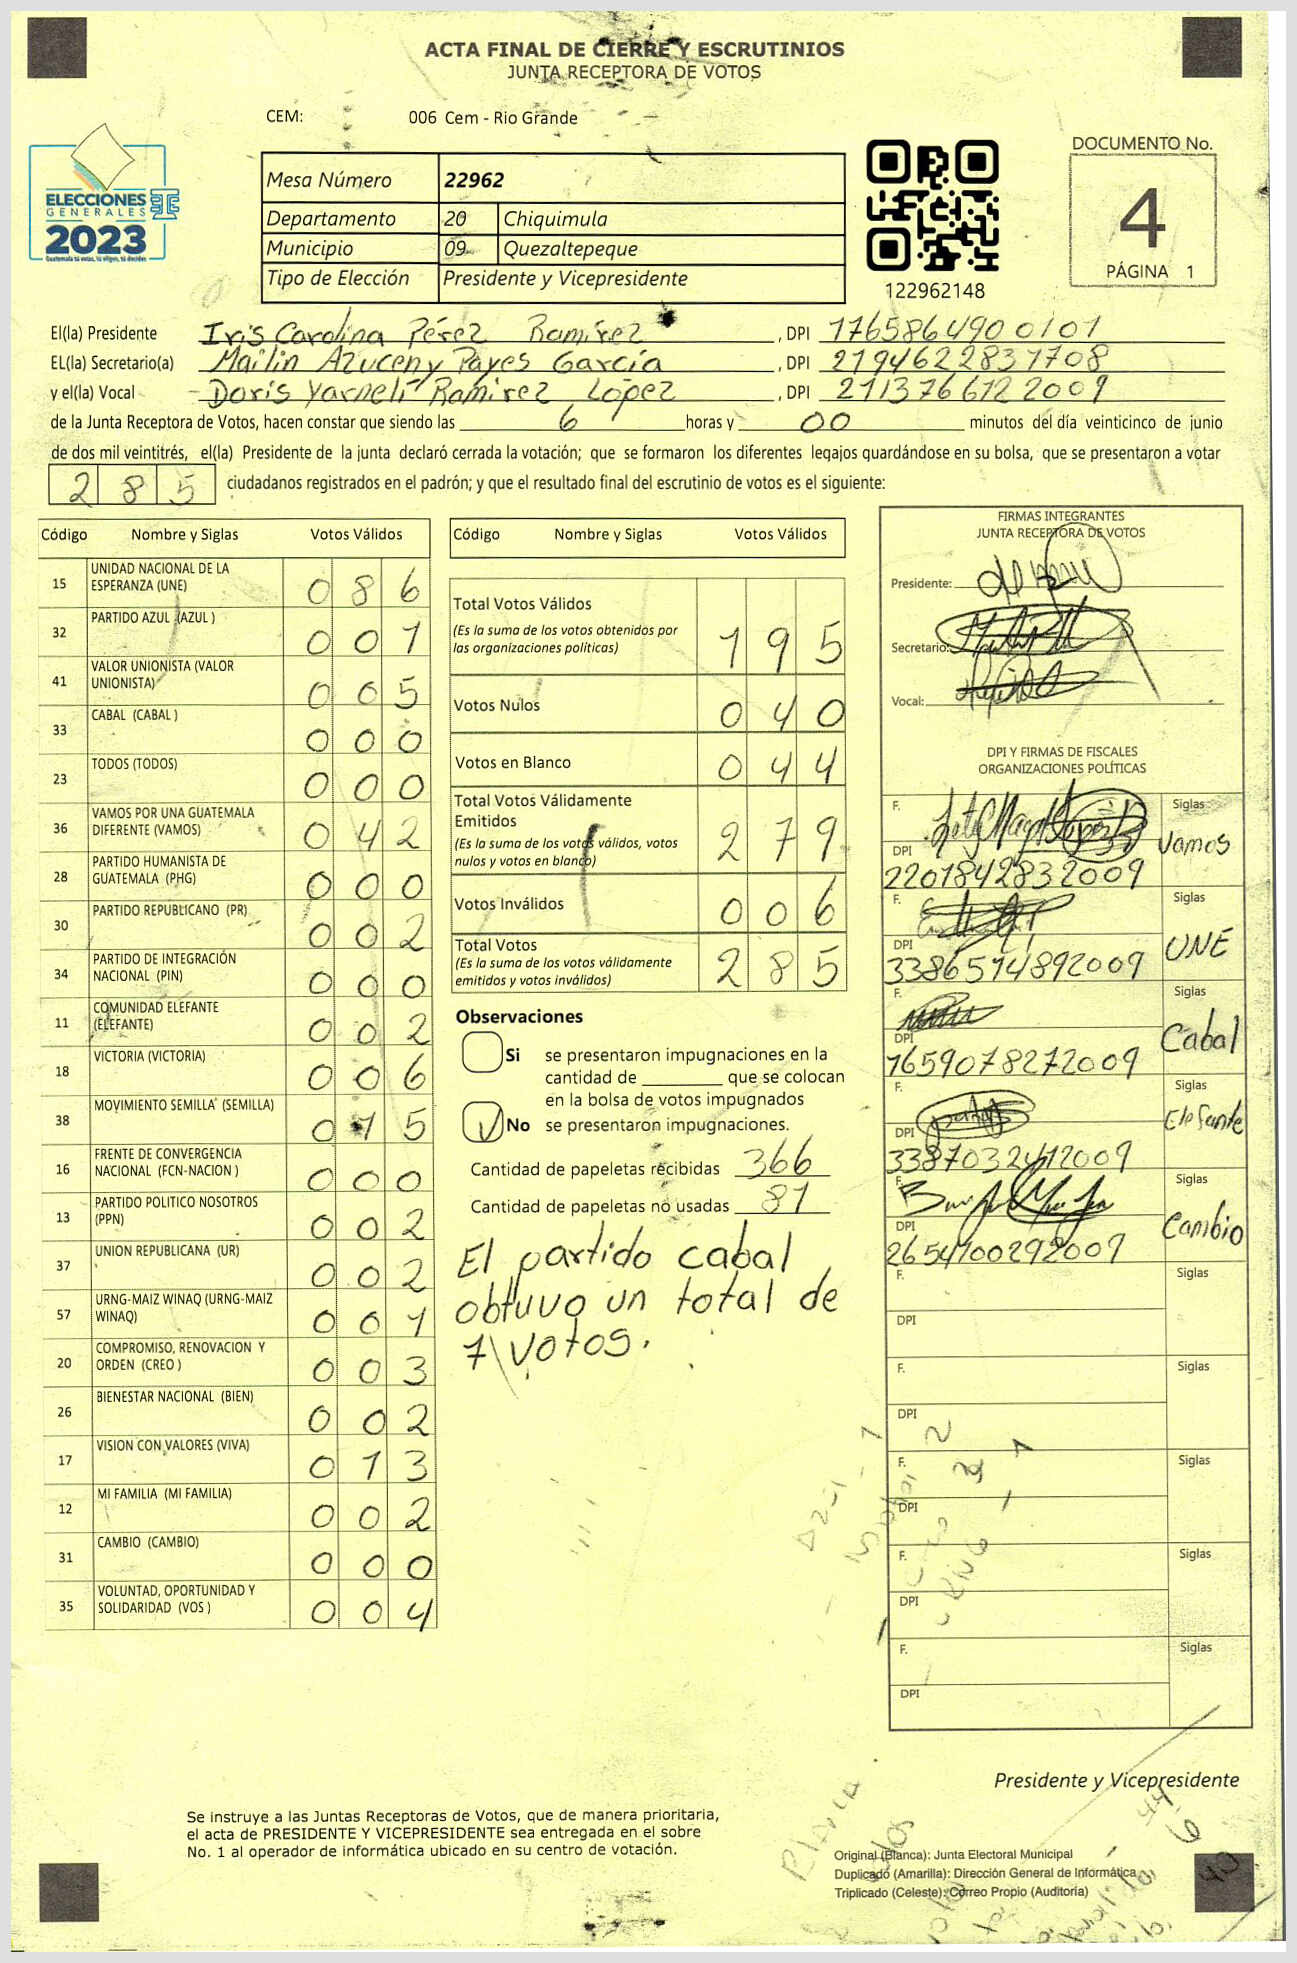 ACTA FINAL DE CIERRE Y ESCRUTINIOS
JUNTA RECEPTORA DE VOTOS
CEM: 006 Cem - Rio Grande
ELECCIONES
GENERALES
2023
Guatemala tú votas, tú eliges, tú decides
Mesa Número 22962
Departamento 20 Chiquimula
Municipio 09 Quezaltepeque
Tipo de Elección Presidente y Vicepresidente
122962148
DOCUMENTO No.
4
PÁGINA 1
El(la) Presidente Iris Carolina Pérez Ramírez , DPI 1765864900101
EL(la) Secretario(a) Mailin Azuceny Payes García , DPI 2194622831708
y el(la) Vocal Doris Yarneli Ramirez López , DPI 2113766122009
de la Junta Receptora de Votos, hacen constar que siendo las 6 horas y 00 minutos del día veinticinco de junio
de dos mil veintitrés, el(la) Presidente de la junta declaró cerrada la votación; que se formaron los diferentes legajos quardándose en su bolsa, que se presentaron a votar
285 ciudadanos registrados en el padrón; y que el resultado final del escrutinio de votos es el siguiente:
Código Nombre y Siglas Votos Válidos
15 UNIDAD NACIONAL DE LA
ESPERANZA (UNE) 086
32 PARTIDO AZUL (AZUL ) 001
41 VALOR UNIONISTA (VALOR
UNIONISTA) 005
33 CABAL (CABAL ) 000
23 TODOS (TODOS) 000
36 VAMOS POR UNA GUATEMALA
DIFERENTE (VAMOS) 042
28 PARTIDO HUMANISTA DE
GUATEMALA (PHG) 000
30 PARTIDO REPUBLICANO (PR) 002
34 PARTIDO DE INTEGRACIÓN
NACIONAL (PIN) 000
11 COMUNIDAD ELEFANTE
(ELEFANTE) 002
18 VICTORIA (VICTORIA) 006
38 MOVIMIENTO SEMILLA (SEMILLA) 015
16 FRENTE DE CONVERGENCIA
NACIONAL (FCN-NACION ) 000
13 PARTIDO POLITICO NOSOTROS
(PPN) 002
37 UNION REPUBLICANA (UR) 002
57 URNG-MAIZ WINAQ (URNG-MAIZ
WINAQ) 001
20 COMPROMISO, RENOVACION Y
ORDEN (CREO ) 003
26 BIENESTAR NACIONAL (BIEN) 002
17 VISION CON VALORES (VIVA) 013
12 MI FAMILIA (MI FAMILIA) 002
31 CAMBIO (CAMBIO) 000
35 VOLUNTAD, OPORTUNIDAD Y
SOLIDARIDAD (VOS ) 004
Código Nombre y Siglas Votos Válidos
Total Votos Válidos
(Es la suma de los votos obtenidos por
las organizaciones politicas) 195
Votos Nulos 040
Votos en Blanco 044
Total Votos Válidamente
Emitidos
(Es la suma de los votos válidos, votos
nulos y votos en blanco) 279
Votos Inválidos 006
Total Votos
(Es la suma de los votos válidamente
emitidos y votos inválidos) 285
Observaciones
Si se presentaron impugnaciones en la
cantidad de ________ que se colocan
en la bolsa de votos impugnados
No se presentaron impugnaciones.
Cantidad de papeletas recibidas 366
Cantidad de papeletas no usadas 81
El partido cabal
obtuvo un total de
7 votos.
FIRMAS INTEGRANTES
JUNTA RECEPTORA DE VOTOS
Presidente:
Secretario:
Vocal:
DPI Y FIRMAS DE FISCALES
ORGANIZACIONES POLÍTICAS
F. Siglas
Vamos
DPI
2201842832009
F. Siglas
UNE
DPI
3386574892009
F. Siglas
Cabal
DPI
1659078272009
F. Siglas
Elefante
DPI
3387032412009
F. Siglas
Cambio
DPI
2654700292009
F. Siglas
DPI
F. Siglas
DPI
F. Siglas
DPI
F. Siglas
DPI
F. Siglas
DPI
Presidente y Vicepresidente
Se instruye a las Juntas Receptoras de Votos, que de manera prioritaria,
el acta de PRESIDENTE Y VICEPRESIDENTE sea entregada en el sobre
No. 1 al operador de informática ubicado en su centro de votación.
Original (Blanca): Junta Electoral Municipal
Duplicado (Amarilla): Dirección General de Informática
Triplicado (Celeste): Correo Propio (Auditoría)